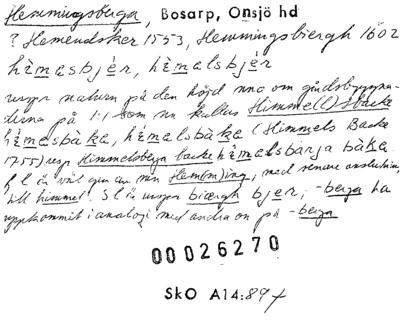 Hemmingsberga, Bosarp, Onsjö hd
? Hemendsker 1553, Hemmingsbiergh 1602
hèmasbjér, hèmalsbjér
urspr naturn på den höjd nno om gårdsbyggna-
derna på 1:1 som nu kallas Himme(l)sbacke
hèmasbàka, hèmalsbàka (Himmels Backe
1755) resp Himmelsberga backe hèmalsbärja bàka.
f l är väl gen av mn Hem(m)ing, med senare anslutning
till himmel. S l är urspr biærgh bjer; -berga ha
uppkommit i analogi med andra on på -berga
00026270
SkO A14:89